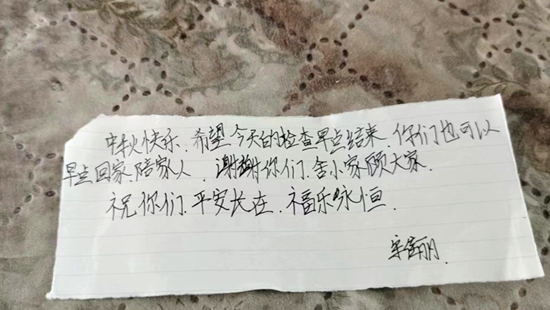 中秋快乐.希望今天的检查早点结束.你们也可以
早点回家陪家人.谢谢你们.舍小家顾大家.
祝你们.平安长在.福乐永恒.